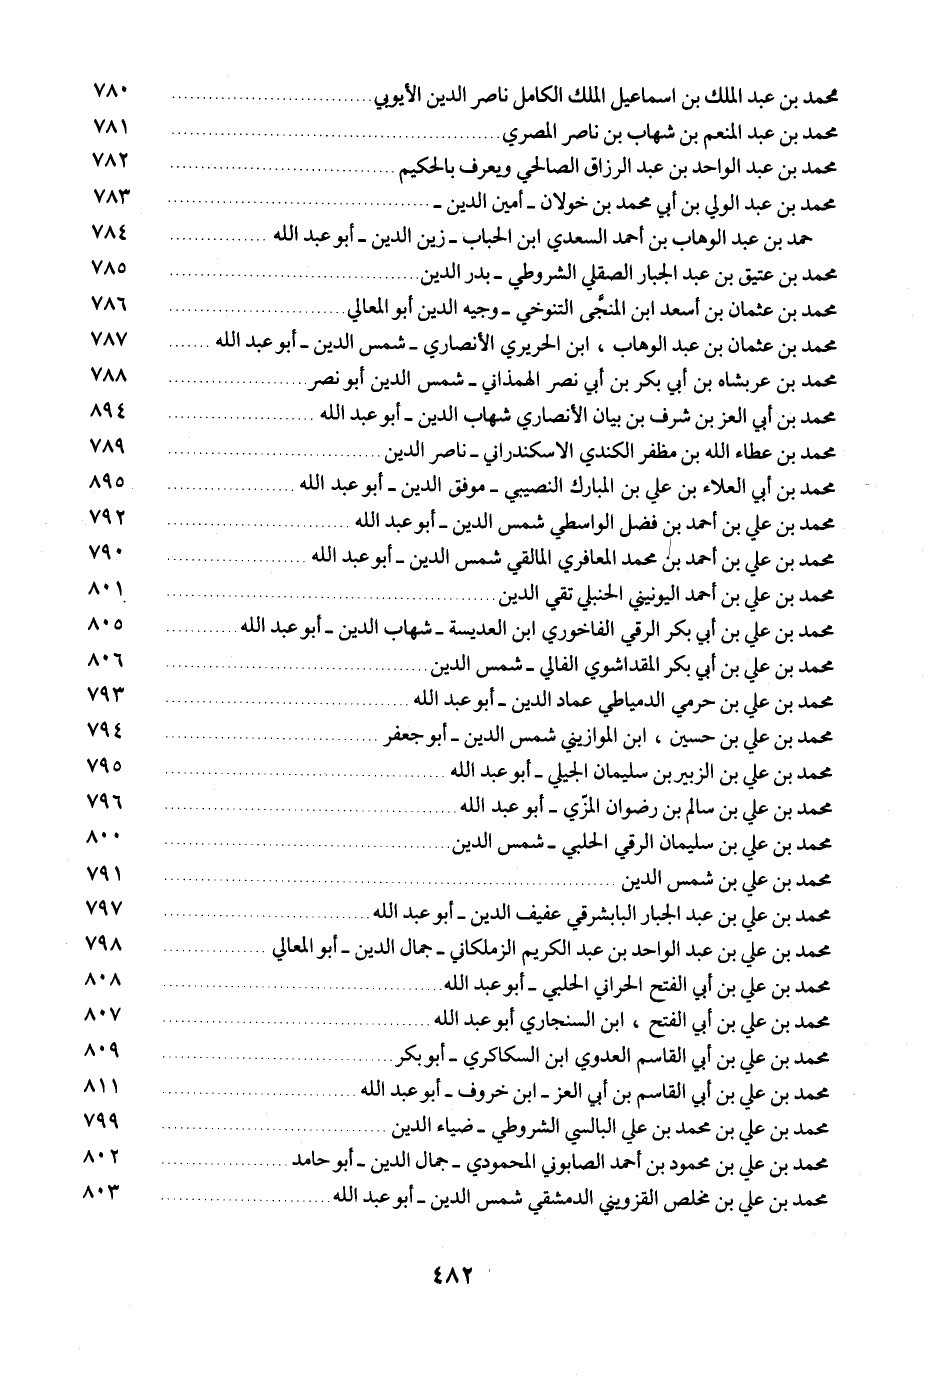 محمد بن عبد الملك بن اسماعيل الملك الكامل ناصر الدين الأيوبي ........ ٧٨٠
محمد بن عبد المنعم بن شهاب بن ناصر المصري ........ ٧٨١
محمد بن عبد الواحد بن عبد الرزاق الصالحي ويعرف بالحكيم ........ ٧٨٢
محمد بن عبد الولي بن أبي محمد بن خولان ـ أمين الدين ـ ........ ٧٨٣
حمد بن عبد الوهاب بن أحمد السعدي ابن الحباب ـ زين الدين ـ أبو عبد الله ........ ٧٨٤
محمد بن عتيق بن عبد الجبار الصقلي الشروطي ـ بدر الدين ........ ٧٨٥
محمد بن عثمان بن أسعد ابن المنجَّى التنوخي ـ وجيه الدين أبو المعالي ........ ٧٨٦
محمد بن عثمان بن عبد الوهاب ، ابن الحريري الأنصاري ـ شمس الدين ـ أبو عبد الله ........ ٧٨٧
محمد بن عربشاه بن أبي بكر بن أبي نصر الهمذاني ـ شمس الدين أبو نصر ........ ٧٨٨
محمد بن أبي العز بن شرف بن بيان الأنصاري شهاب الدين ـ أبو عبد الله ........ ٨٩٤
محمد بن عطاء الله بن مظفر الكندي الاسكندراني ـ ناصر الدين ........ ٧٨٩
محمد بن أبي العلاء بن علي بن المبارك النصيبي ـ موفق الدين ـ أبو عبد الله ........ ٨٩٥
محمد بن علي بن أحمد بن فضل الواسطي شمس الدين ـ أبو عبد الله ........ ٧٩٢
محمد بن علي بن أحمد بن محمد المعافري المالقي شمس الدين ـ أبو عبد الله ........ ٧٩٠
محمد بن علي بن أحمد اليونيني الحنبلي تقي الدين ........ ٨٠١
محمد بن علي بن أبي بكر الرقي الفاخوري ابن العديسة ـ شهاب الدين ـ أبو عبد الله ........ ٨٠٥
محمد بن علي بن أبي بكر المقداشوي الفالي ـ شمس الدين ........ ٨٠٦
محمد بن علي بن حرمي الدمياطي عماد الدين ـ أبو عبد الله ........ ٧٩٣
محمد بن علي بن حسين ، ابن الموازيني شمس الدين ـ أبو جعفر ........ ٧٩٤
محمد بن علي بن الزبير بن سليمان الجيلي ـ أبو عبد الله ........ ٧٩٥
محمد بن علي بن سالم بن رضوان المزّي ـ أبو عبد الله ........ ٧٩٦
محمد بن علي بن سليمان الرقي الحلبي ـ شمس الدين ........ ٨٠٠
محمد بن علي بن شمس الدين ........ ٧٩١
محمد بن علي بن عبد الجبار البابشرقي عفيف الدين ـ أبو عبد الله ........ ٧٩٧
محمد بن علي بن عبد الواحد بن عبد الكريم الزملكاني ـ جمال الدين ـ أبو المعالي ........ ٧٩٨
محمد بن علي بن أبي الفتح الحراني الحلبي ـ أبو عبد الله ........ ٨٠٨
محمد بن علي بن أبي الفتح ، ابن السنجاري أبو عبد الله ........ ٨٠٧
محمد بن علي بن أبي القاسم العدوي ابن السكاكري ـ أبو بكر ........ ٨٠٩
محمد بن علي بن أبي القاسم بن أبي العز ـ ابن خروف ـ أبو عبد الله ........ ٨١١
محمد بن علي بن محمد بن علي البالسي الشروطي ـ ضياء الدين ........ ٧٩٩
محمد بن علي بن محمود بن أحمد الصابوني المحمودي ـ جمال الدين ـ أبو حامد ........ ٨٠٢
محمد بن علي بن مخلص القزويني الدمشقي شمس الدين ـ أبو عبد الله ........ ٨٠٣
٤٨٢